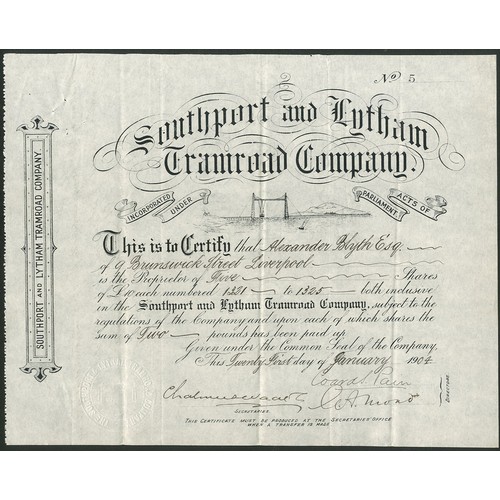 No 5
Southport and Lytham
Tramroad Company.
INCORPORATED UNDER ACTS OF PARLIAMENT.
This is to Certify that Alexander Blyth Esq.
of 9 Brunswick Street Liverpool
is the Proprietor of Five Shares
of £10 each numbered 1321 to 1325 both inclusive
in the Southport and Lytham Tramroad Company, subject to the
regulations of the Company and upon each of which shares the
sum of Two pounds has been paid up
Given under the Common Seal of the Company,
This Twenty First day of January 1904
DIRECTORS.
SECRETARIES.
THIS CERTIFICATE MUST BE PRODUCED AT THE SECRETARIES' OFFICE
WHEN A TRANSFER IS MADE
SOUTHPORT AND LYTHAM TRAMROAD COMPANY.